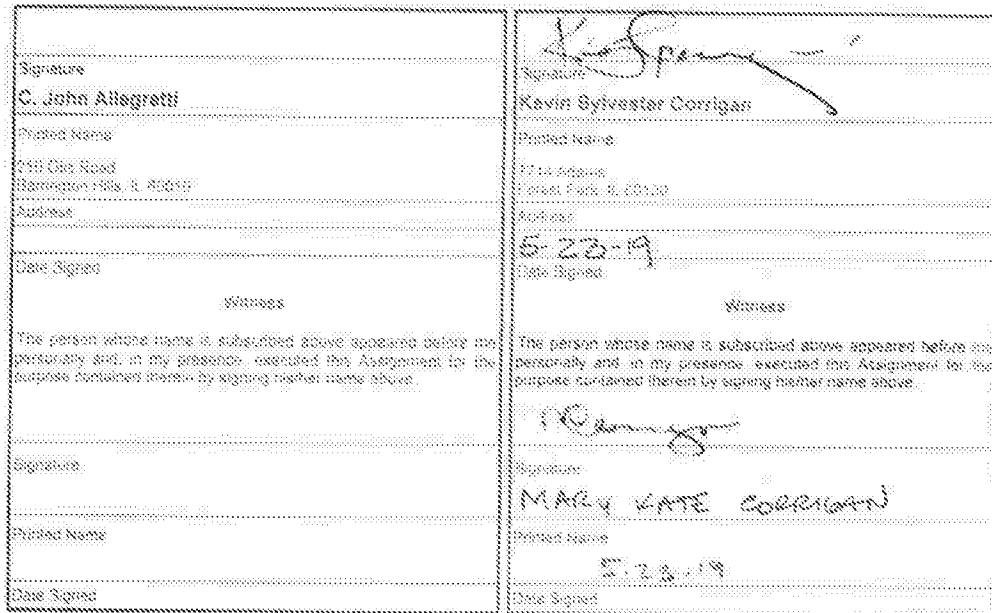 Signature
C. John Allegretti
Printed Name
Road
Barrington Hills, IL 60010
Address
Date Signed
Witness
The person whose name is subscribed above appeared before me
personally and, in my presence, executed this Assignment for the
purpose contained therein by signing his/her name above.
Signature
Printed Name
Date Signed
Signature
Kevin Sylvester Corrigan
Printed Name
Adams
Forest Park, IL 60130
Address
5-23-19
Date Signed
Witness
The person whose name is subscribed above appeared before me
personally and, in my presence, executed this Assignment for the
purpose contained therein by signing his/her name above.
Signature
MARY KATE CORRIGAN
Printed Name
5.23.19
Date Signed